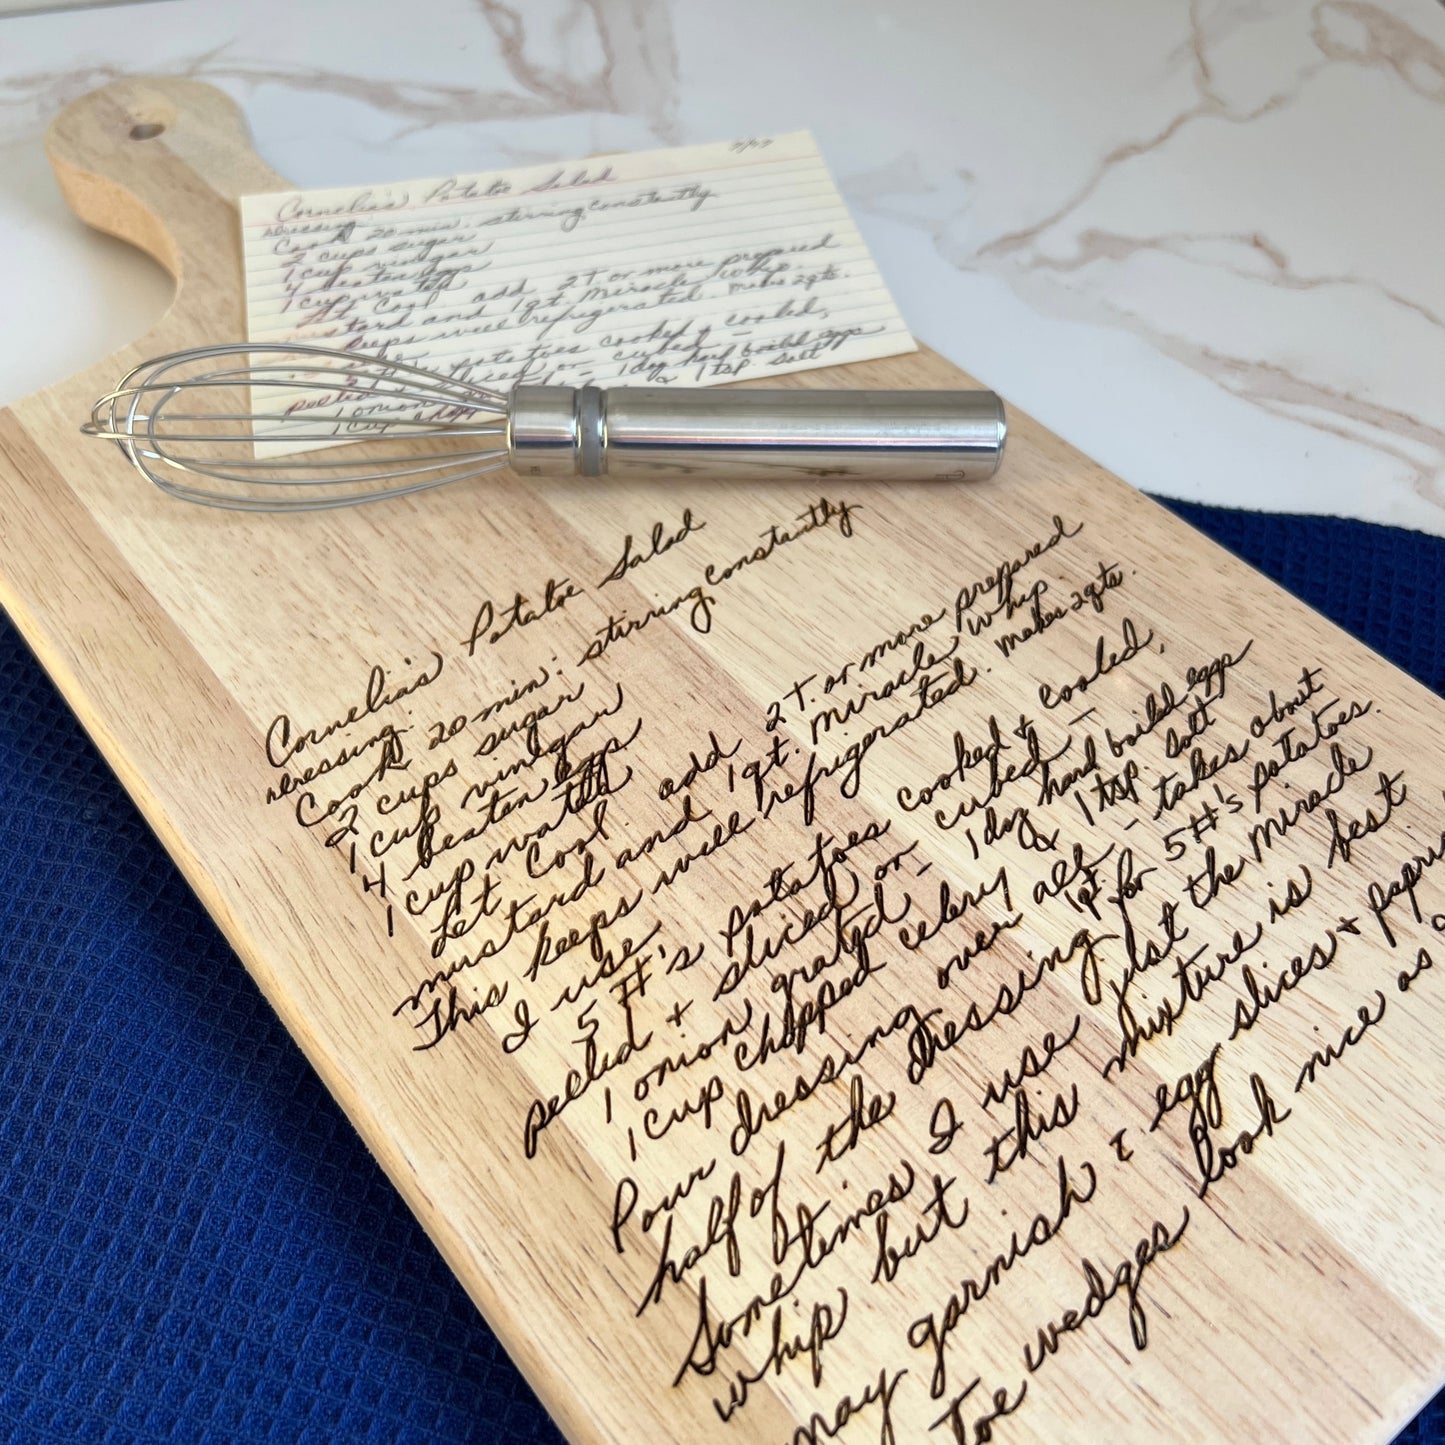 Cornelia's Potatoe Salad
Dressing
Cook 20 min. stirring constantly
2 cups sugar
1 cup vinegar
4 beaten eggs
1 cup water
Let Cool add 2 T. or more prepared
mustard and 1 qt. Miracle Whip.
keeps well refrigerated. Makes 2 qts.
potatoes cooked & cooled,
peeled + sliced or cubed –
1 onion – 1 doz hard boild eggs
1 cup chop & 1 tsp. salt
Cornelia's Potatoe Salad
Dressing:
Cook 20 min: stirring constantly
2 cups sugar
1 cup vinegar
4 beaten eggs
1 cup water
Let Cool. add 2 T. or more prepared
mustard and 1 qt. Miracle Whip.
This keeps well refrigerated. Makes 2 qts.
I use
5 #'s potatoes cooked & cooled,
peeled + sliced or cubed –
1 onion grated – 1 doz hard boild eggs
1 cup chopped celery & 1 tsp. salt
Pour dressing over all – takes about
half of the dressing 1 qt. for 5 #'s potatoes.
Sometimes I use just the Miracle
whip but this mixture is best.
may garnish c egg slices + papri
toe wedges look nice as